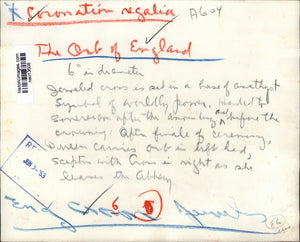 Coronation regalia A604
The Orb of England
6" in diameter
Jeweled cross is set in a base of amethyst
Symbol of worldly power. Handed to
Sovereign after the anointing and before the
crowning. After finale of ceremony,
Queen carries Orb in left hand,
Sceptre with Cross in right as she
leaves the Abbey
JUN 53
6
Eng Crown Jewels